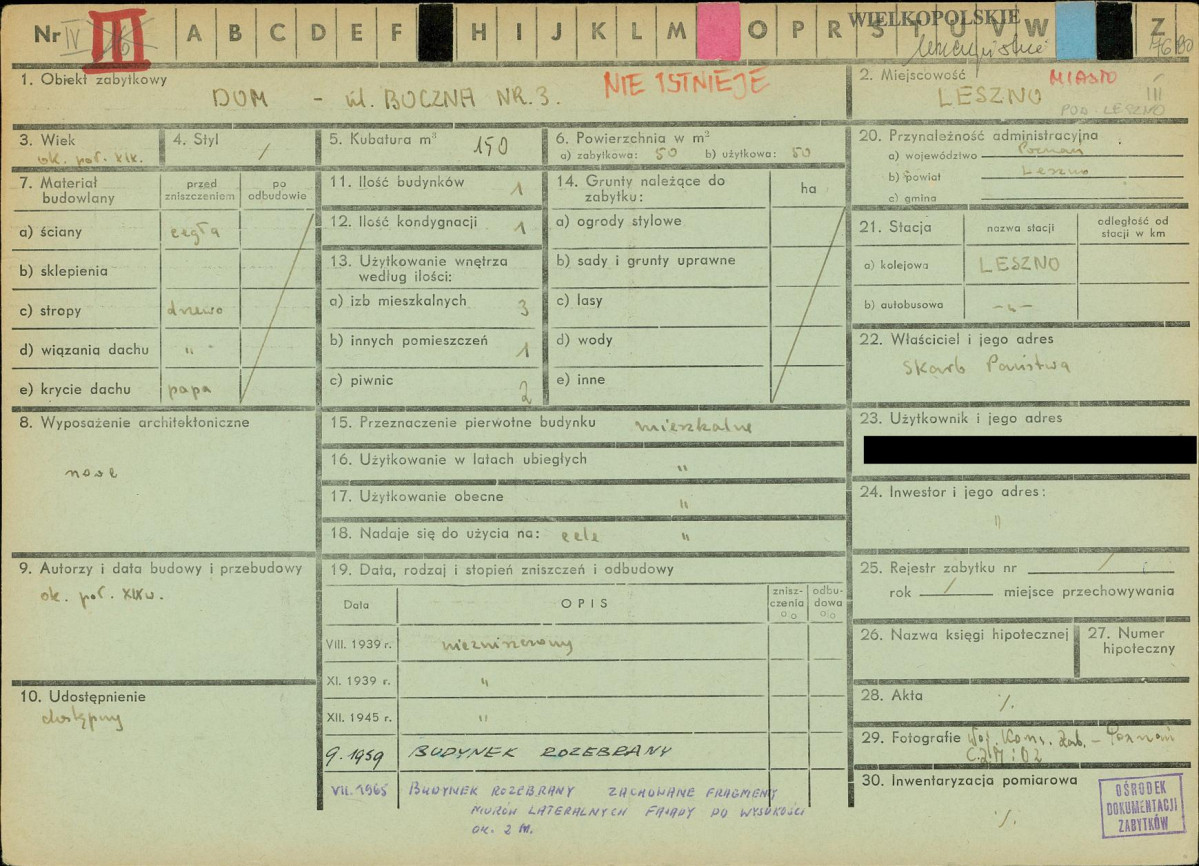 Nr IV III A B C D E F H I J K L M O P R S T U V W Z
WIELKOPOLSKIE
leszczyńskie
76/80
1. Obiekt zabytkowy
DOM - ul. BOCZNA NR. 3.
NIE ISTNIEJE
2. Miejscowość
MIASTO
III
LESZNO
POD. LESZNO
3. Wiek
ok. poł. XIX.
4. Styl
/
5. Kubatura m³ 150
6. Powierzchnia w m²
a) zabytkowa: 50 b) użytkowa: 50
20. Przynależność administracyjna
a) województwo Poznań
b) powiat Leszno
c) gmina
7. Materiał budowlany
przed zniszczeniem
po odbudowie
a) ściany cegła
b) sklepienia
c) stropy drzewo
d) wiązania dachu "
e) krycie dachu papa
11. Ilość budynków 1
12. Ilość kondygnacji 1
13. Użytkowanie wnętrza
według ilości:
a) izb mieszkalnych 3
b) innych pomieszczeń 1
c) piwnic 2
14. Grunty należące do
zabytku:
ha
a) ogrody stylowe
b) sady i grunty uprawne
c) lasy
d) wody
e) inne
21. Stacja
nazwa stacji
odległość od
stacji w km
a) kolejowa LESZNO
b) autobusowa -"-
22. Właściciel i jego adres
Skarb Państwa
8. Wyposażenie architektoniczne
15. Przeznaczenie pierwotne budynku mieszkalne
16. Użytkowanie w latach ubiegłych "
17. Użytkowanie obecne "
18. Nadaje się do użycia na: cele "
23. Użytkownik i jego adres
24. Inwestor i jego adres:
"
9. Autorzy i data budowy i przebudowy
ok. poł. XIX w.
10. Udostępnienie
dostępny
19. Data, rodzaj i stopień zniszczeń i odbudowy
Data
OPIS
znisz-
czenia
%
odbu-
dowa
%
VIII. 1939 r. niezniszczony
XI. 1939 r. "
XII. 1945 r. "
9. 1959 BUDYNEK ROZEBRANY
VII. 1965 BUDYNEK ROZEBRANY ZACHOWANE FRAGMENY
MURÓW LATERALNYCH FASADY DO WYSOKOŚCI
OK. 2 M.
25. Rejestr zabytku nr /
rok / miejsce przechowywania
26. Nazwa księgi hipotecznej
27. Numer
hipoteczny
28. Akta ./.
29. Fotografie Woj. Kons. Zab. - Poznań
30. Inwentaryzacja pomiarowa
./.
OŚRODEK
DOKUMENTACJI
ZABYTKÓW